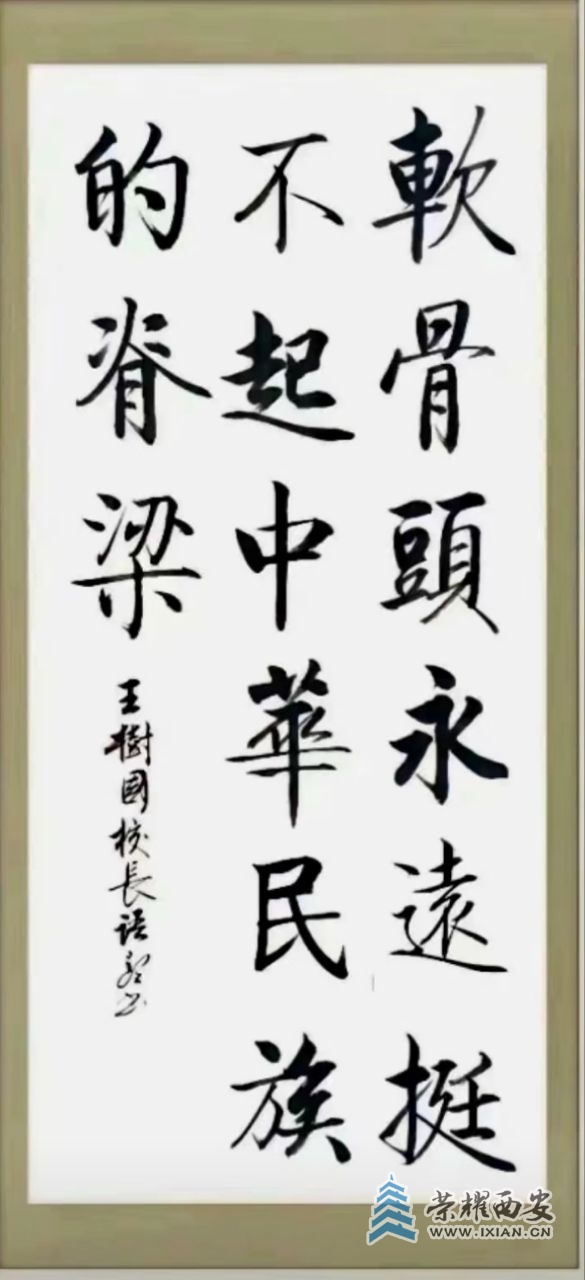 軟骨頭永遠挺
不起中華民族
的脊梁
王樹國校長語
荣耀西安
WWW.IXIAN.CN